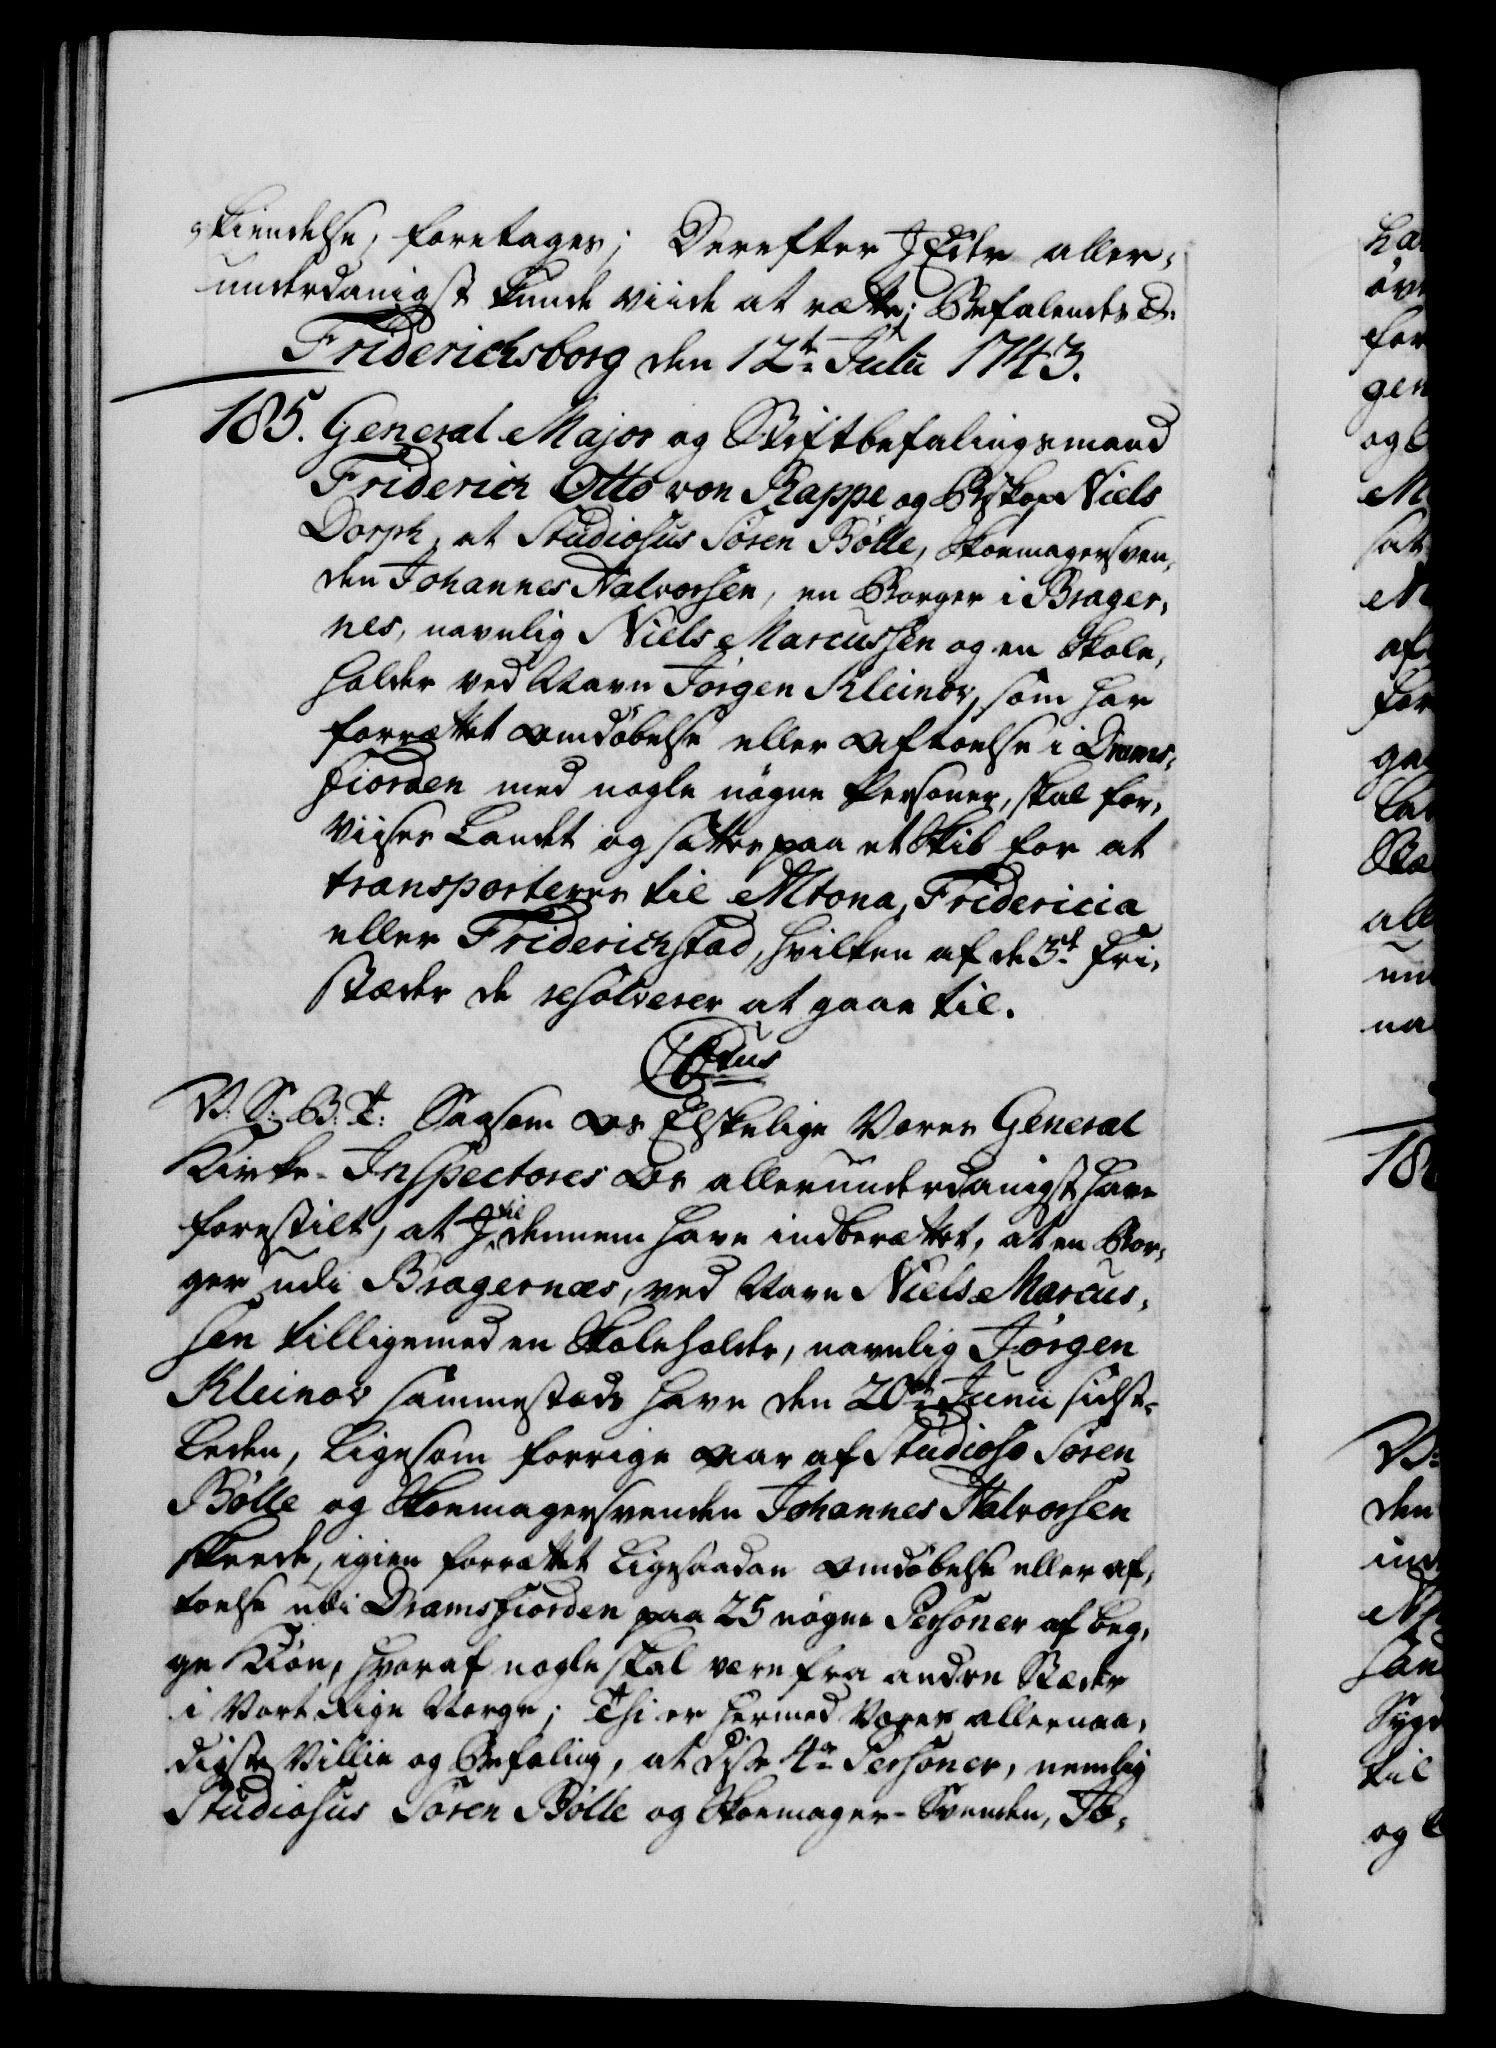 skiendelse, foretages; Derefter I Eder aller-
underdanigst kunde viide at rætte; Befalendes &c:
Friderichsborg den 12te Julii 1743.
185. General-Major og Stiftbefalingsmand
Friderich Otto von Rappe og Biskop Niels
Dorph, at Studiosus Sören Bölle, Skoemagersven-
den Johannes Halvorsen, en Borger i Brager-
nes, navnlig Niels Marcussen og en Skole-
holder ved Navn Jörgen Kleinov, som har
forrættet omdöbelse eller aftoelse i Drams-
fiorden med nogle nögne Personer, skal for-
viises Landet og sættes paa et Skib for at
transporteres til Altona, Fridericia
eller Friderichstad, hvilken af de 3de fri-
stæder de resolverer at gaae til.
C 6tus
V: S: G: B: T: Saasom Os Elskelige Vores General
Kirke-Inspectores Os allerunderdanigst have
forestilt, at I til dennem have indberættet, at en Bor-
ger udi Bragernæs, ved Navn Niels Marcus-
sen tilligemed en Skoleholder, navnlig Jörgen
Kleinov sammestæds have den 20de Junii sidst-
leden, ligesom forrige aar af Studioso Sören
Bölle og Skoemagersvenden Johannes Halvorsen
skeede, igien forrættet ligesaadan omdöbelse eller af-
toelse udi Dramsfiorden paa 25 nögne Personer af beg-
ge Kiön, hvoraf nogle skal være fra andre Stæder
i Vort Rige Norge; Thi er hermed Vores allernaa-
digste Villie og Befaling, at disse 4re Personer, nemlig
Studiosus Sören Bölle og Skoemager-Svenden, Jo-